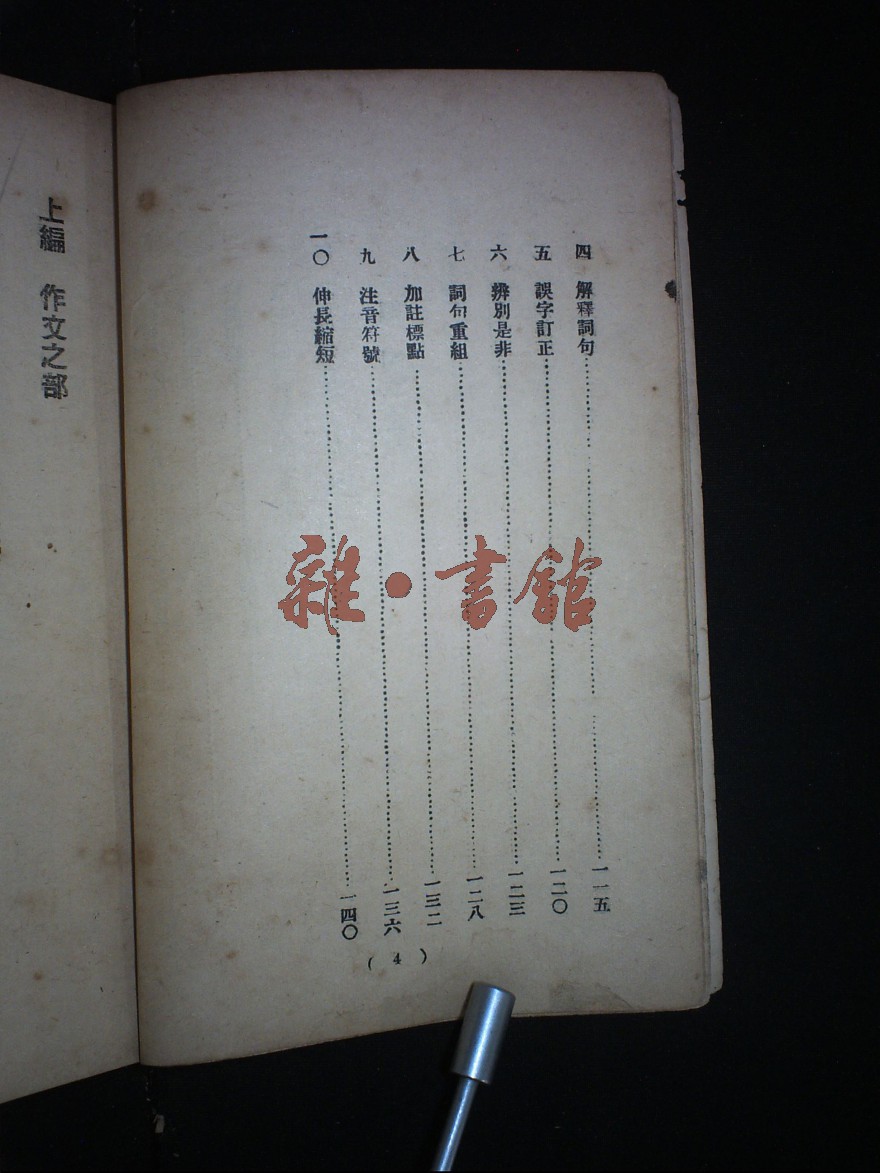 四 解釋詞句……一一五
五 誤字訂正……一二〇
六 辨別是非……一二三
七 詞句重組……一二八
八 加註標點……一三二
九 注音符號……一三六
一〇 伸長縮短……一四〇
( 4 )
上編 作文之部
雜·書館